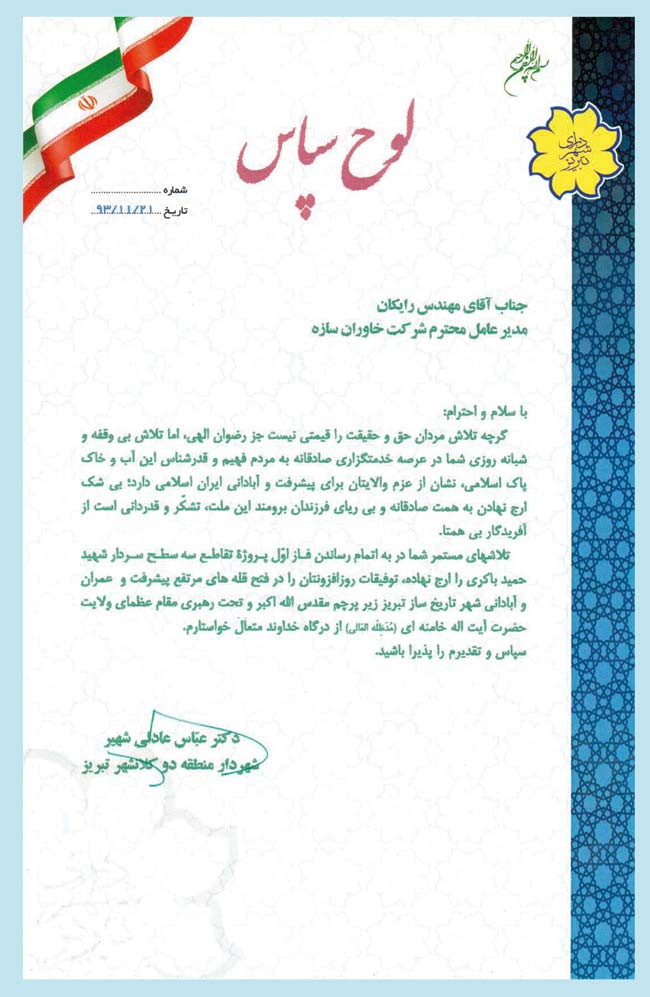 بسم الله الرحمن الرحیم
شهرداری تبریز
لوح سپاس
شماره ..........................
تاریخ ...۹۳/۱۱/۲۱...
جناب آقای مهندس رایکان
مدیر عامل محترم شرکت خاوران سازه
با سلام و احترام:
گرچه تلاش مردان حق و حقیقت را قیمتی نیست جز رضوان الهی، اما تلاش بی وقفه و
شبانه روزی شما در عرصه خدمتگزاری صادقانه به مردم فهیم و قدرشناس این آب و خاک
پاک اسلامی، نشان از عزم والایتان برای پیشرفت و آبادانی ایران اسلامی دارد؛ بی شک
ارج نهادن به همت صادقانه و بی ریای فرزندان برومند این ملت، تشکّر و قدردانی است از
آفریدگار بی همتا.
تلاشهای مستمر شما در به اتمام رساندن فـاز اوّل پـروژۀ تقاطـع سه سطـح سـردار شهید
حمید باکری را ارج نهاده، توفیقات روزافزونتان را در فتح قله های مرتفع پیشرفت و عمران
و آبادانی شهر تاریخ ساز تبریز زیر پرچم مقدس الله اکبر و تحت رهبری مقام عظمای ولایت
حضرت آیت اله خامنه ای (مُدّظِلّه العٰالی) از درگاه خداوند متعالَ خواستارم.
سپاس و تقدیرم را پذیرا باشید.
دکتر عبّاس عادلی شهیر
شهردار منطقه دو کلانشهر تبریز